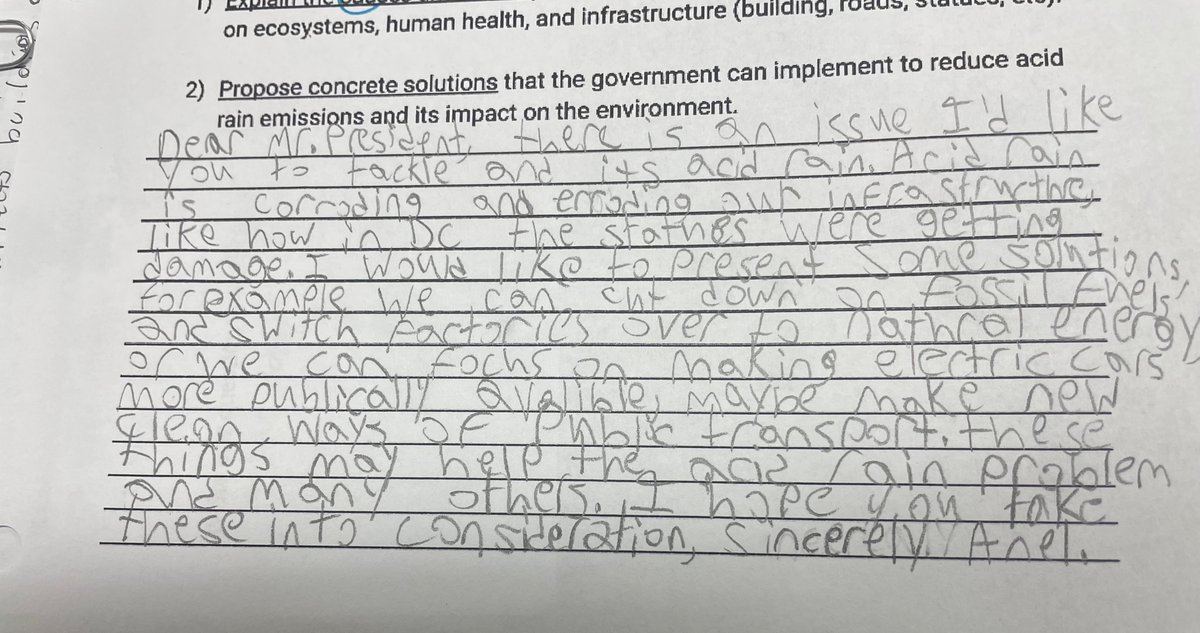 1) Explain the
on ecosystems, human health, and infrastructure (building, roads, statues, etc).
2) Propose concrete solutions that the government can implement to reduce acid
rain emissions and its impact on the environment.
Dear Mr. President, there is an issue I'd like
You to tackle and its acid rain. Acid rain
is corroding and erroding our infrastructure,
like how in DC the statues were getting
damage. I would like to present some solutions,
for example we can cut down on fossil fuels,
and switch factories over to natural energy
or we can focus on making electric cars
more publically avalible, maybe make new
clean ways of public transport. these
things may help the acid rain problem
and many others. I hope you take
these into consideration, Sincerely. Anel.